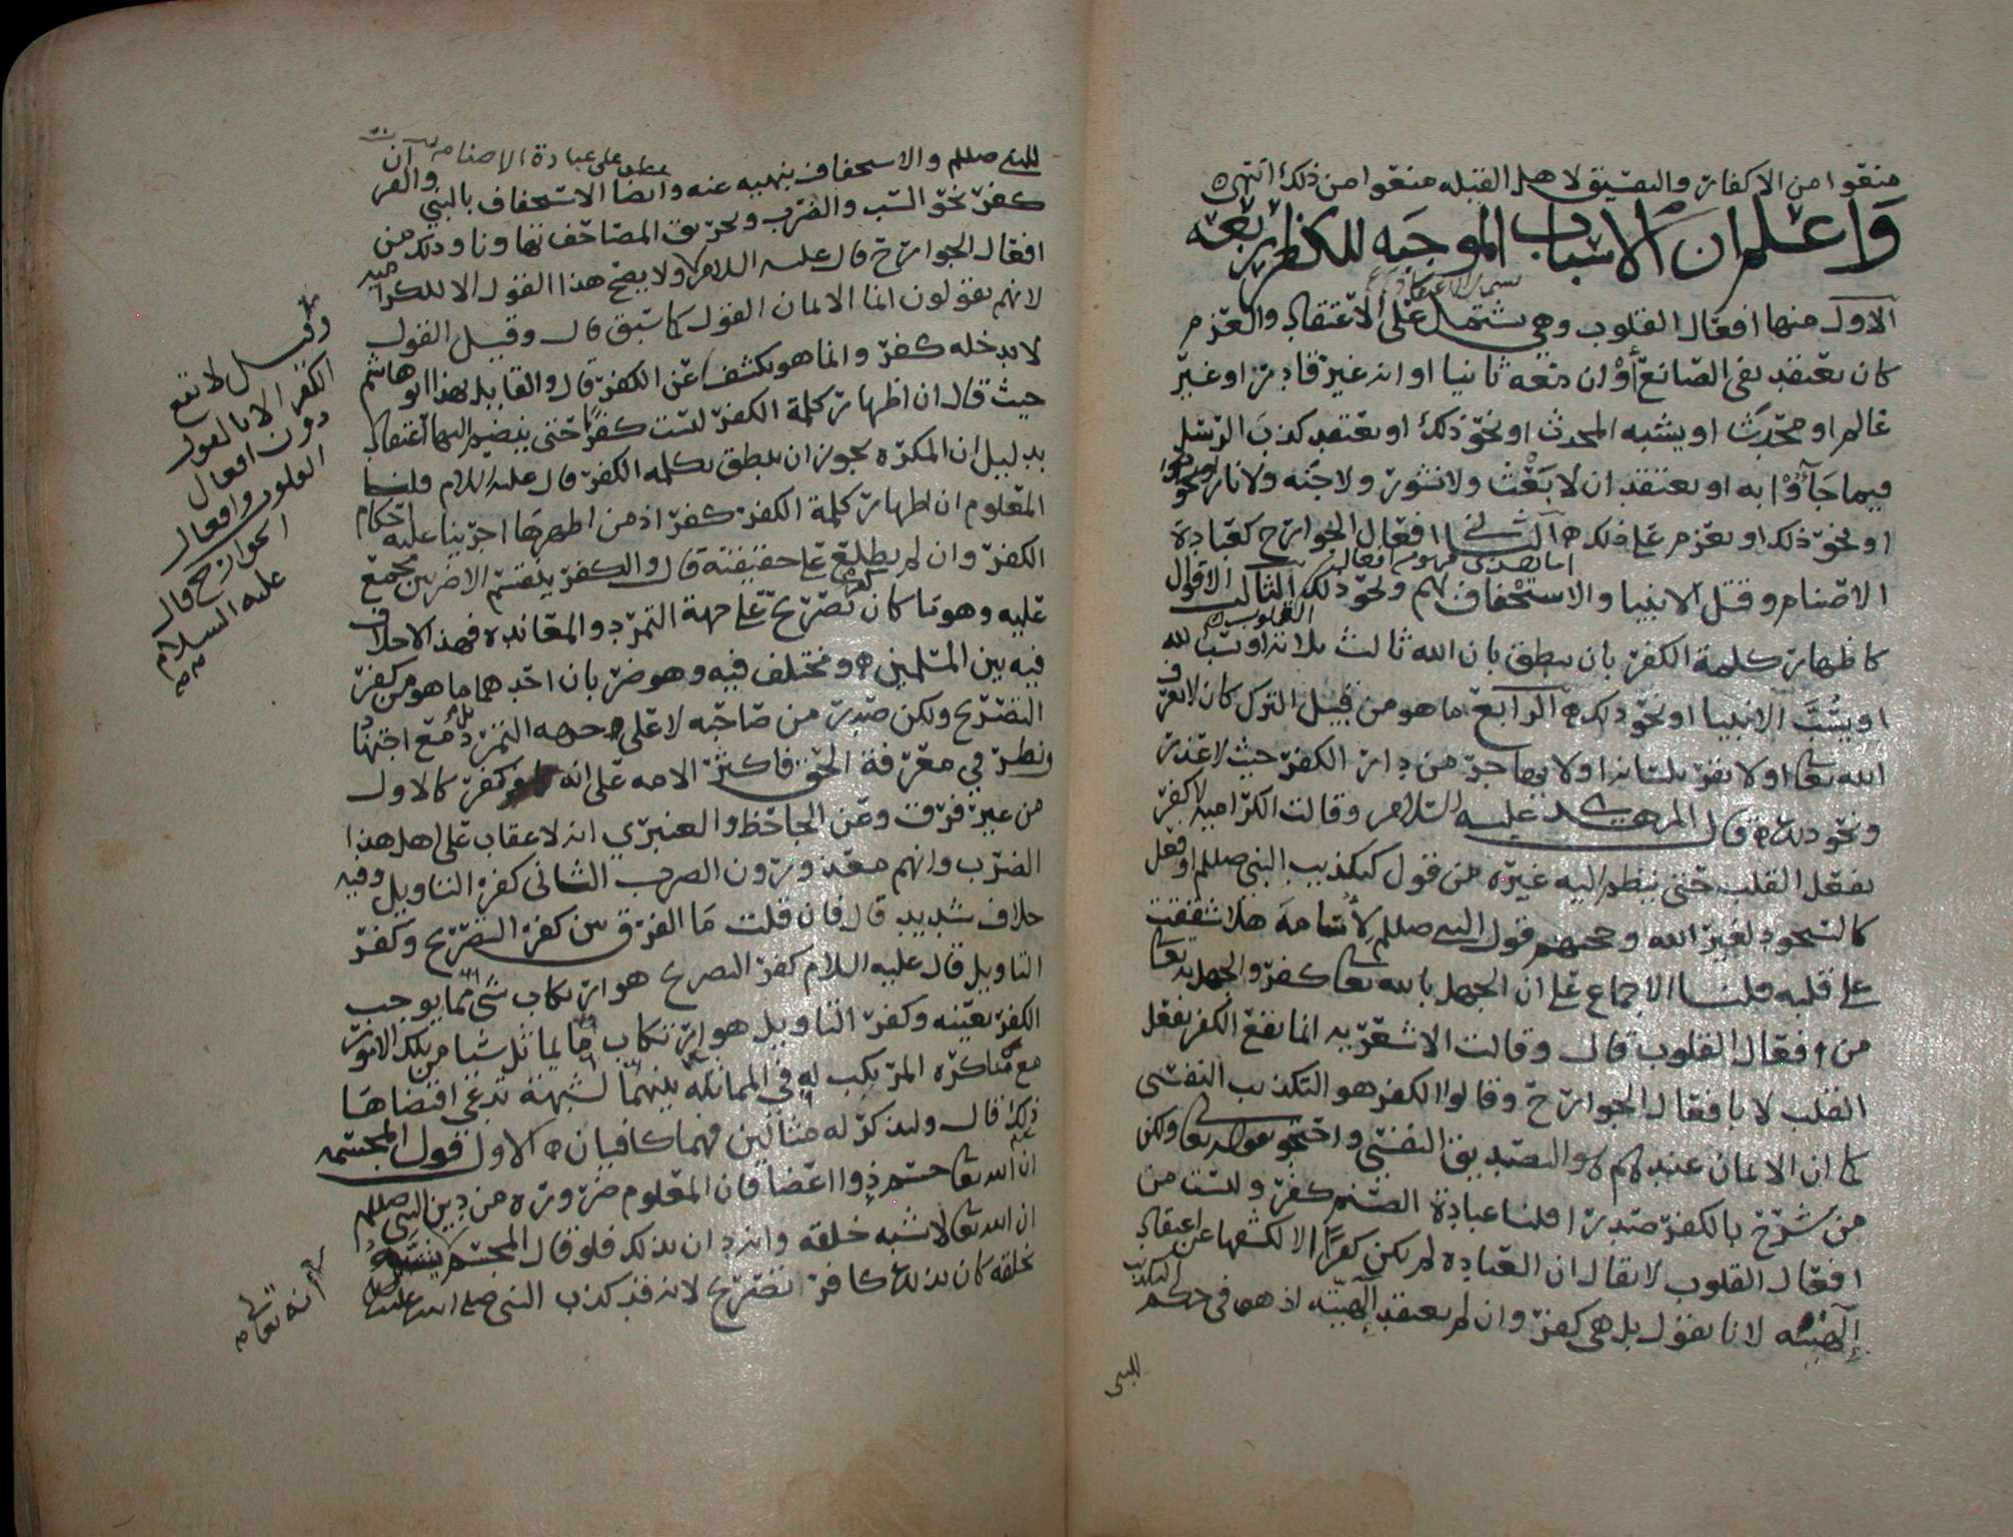 منعوا من الاكفار والتفسيق لاهل القبله منعوا من ذلك انتهى
وَاعلم ان الاسباب الموجبه للكفر اربعه
الاول منها افعال القلوب وهي تشتمل على الاعتقاد والعزم
كان يعتقد نفي الصانع أوْ ان معه ثانيا او انه غير قادر او غير
عالم او محدَث او يشبه المحدث او نحو ذلك او يعتقد كذب الرسل
فيما جَآؤا به او يعتقد ان لا بَعْث ولا نشور ولا جنه ولا نار
او نحو ذلك او يعزم على ذلك الثـــاني افعال الجوارح كعبادة
الاصنام وقتل الانبيا والاستخفاف بهم ونحو ذلك الثالث الاقوال
كاظهار كلمة الكفر بان ينطق بان الله ثالث ثلاثه او يسب الله
او يسُبَّ الانبيا او نحو ذلك الرابع ما هو من قبيل الترك كان لا يعرف
الله تعالى او لا يقر بلسانه او لا يهاجر من دار الكفر حيث لا عذر
ونحو ذلك قال المهدي عليه السلام وقالت الكراميه لا كفر
بفعل القلب حتى ينظم اليه غيره من قول كتكذيب النبي صللم او فعل
كالسجود لغير الله وحجتهم قول النبي صللم لأسامة هلا شققت
على قلبه قلنـــا الاجماع على ان الجهل بالله تعالى كفر والجهل به تعالى
من افعال القلوب قال وقالت الاشعريه انما يقع الكفر بفعل
القلب لا بافعال الجوارح وقالوا الكفر هو التكذيب النفسي
كما ان الايمان عندهم هو التصديق النفسي واحتجو بقوله تعالى ولكن
من شرح بالكفر صدرا قلنا عبادة الصنم كفر وليست من
افعال القلوب لا يقال ان العباده لم يكن كفرًا الا لكشفها عن اعتقاد
إلهيته لانا نقول بل هي كفر وان لم يعتقد إلهيته اذ هي في حكم التكذيب
للنبي
للنبي صللم والاستخفاف بنهيه عنه وايضا الاستخفاف بالنبي والقرآن
عطف على عبادة الاصنام
كفر نحو السب والضرب وتحريق المصاحف تهاونا وذلك من
افعال الجوارح قال عليه السلام ولا يصح هذا القول الا للكراميه
لانهم يقولون انما الايمان القول كما سبق قال وقيل القول
لا يدخله كفر وانما هو يكشف عن الكفر قال والقايل بهذا ابو هاشم
حيث قال ان اظهار كلمة الكفر ليست كفرًا حتى ينضم اليها اعتقاد
بدليل ان المكره يجوز ان ينطق بكلمه الكفر قال عليه السلام قلنـــا
المعلوم ان اظهار كلمة الكفر كفر اذ من اظهرها اجرينا عليه احكام
الكفر وان لم يطلع على حقيقته قال والكفر ينقسم الى ضربين مجمع
عليه وهو ما كان تصريح على جهة التمرد والمعانده فهذا لا خلاف
فيه بين المسلمين ومختلف فيه وهو ضربان احدهما ما هو من كفر
التصريح ولكن صدر من صاحبه لا على جهه التمرد بل مع اجتهاد
ونظر في معرفة الحق فاكثر الامه على انه كفر كالاول
من غير فرق وعن الجاحظ والعنبري انه لا عقاب على اهل هذا
الضرب وانهم معذورون الضرب الثاني كفر التاويل وفيه
خلاف شديد قال فان قلت مَا الفرق بين كفر التصريح وكفر
التاويل قال عليه السلام كفر التصريح هو ارتكاب شي مما يوجب
الكفر بعينه وكفر التاويل هو ارتكاب ما يماثل شيا من تلك الامور
مع مناكره المرتكب له في المماثله بينهما لشبهة تدعى اقتضاها
ذلك قال ولنذكر له مثالين فهما كافيان الاول قول المجسمه
ان الله تعالى جسم ذوا اعضا فان المعلوم ضروره من دين النبي صللم
ان الله تعالى لا يشبه خلقه وانه دان بذلك فلو قال المجسم
بخلقه كان بذلك كافر تصريح لانه قد كذب النبي صلى الله عليه
وقيل لا يقع
الكفر الا بالقول
دون افعال
القلوب وافعال
الجوارح قال
عليه السلام